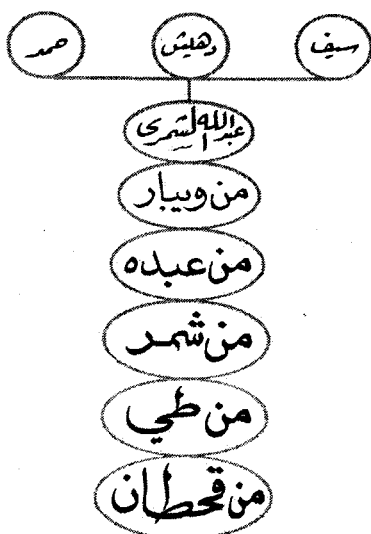 سيف
دهليش
حمد
عبدالله الشمري
من ويبار
من عبده
من شمر
من طي
من قحطان